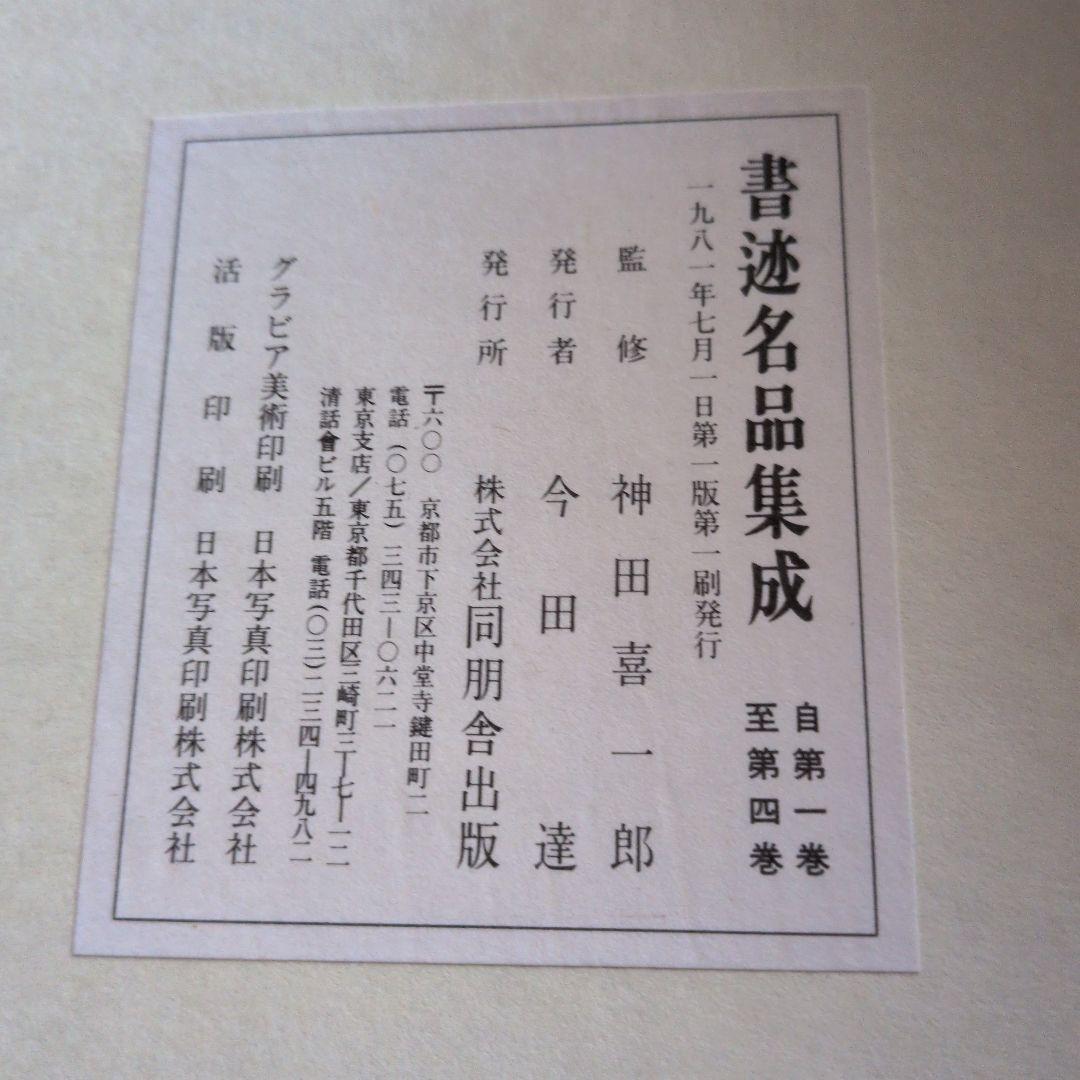 書迹名品集成
自第一巻
至第四巻
一九八一年七月一日第一版第一刷発行
監修 神田喜一郎
発行者 今田達
発行所 株式会社同朋舎出版
〒六〇〇 京都市下京区中堂寺鍵田町二
電話(〇七五)三四三―〇六二一
東京支店/東京都千代田区三崎町三―七―一二
清話會ビル五階 電話(〇三)二三四―四九八二
グラビア美術印刷 日本写真印刷株式会社
活版印刷 日本写真印刷株式会社